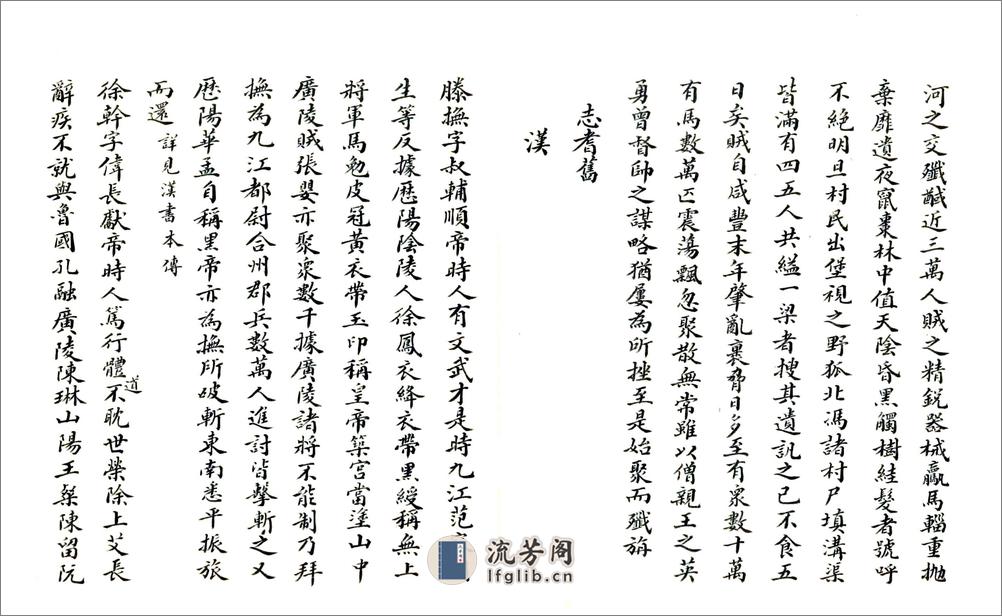 河之交殲馘近三萬人賊之精銳器械驘馬輜重拋
棄靡遺夜竄棗林中值天陰昏黑觸樹絓髮者號呼
不絕明旦村民出堡視之野狐北馮諸村尸填溝渠
皆滿有四五人共縊一梁者搜其遺訊之已不食五
日矣賊自咸豐末年肇亂裹脅日多至有衆數十萬
有馬數萬匹震蕩飄忽聚散無常雖以僧親王之英
勇曾督帥之謀略猶屢為所挫至是始聚而殲旃
志耆舊
漢
滕撫字叔輔順帝時人有文武才是時九江范
生等反據歷陽陰陵人徐鳳衣絳衣帶黑綬稱無上
將軍馬勉皮冠黃衣帶玉印稱皇帝築宮當塗山中
廣陵賊張嬰亦聚衆數千據廣陵諸將不能制乃拜
撫為九江都尉合州郡兵數萬人進討皆擊斬之又
歷陽華孟自稱黑帝亦為撫所破斬東南悉平振旅
而還 詳見漢書本傳
徐幹字偉長獻帝時人篤行體道不耽世榮除上艾長
辭疾不就與魯國孔融廣陵陳琳山陽王粲陳留阮
流芳阁
lfglib.cn